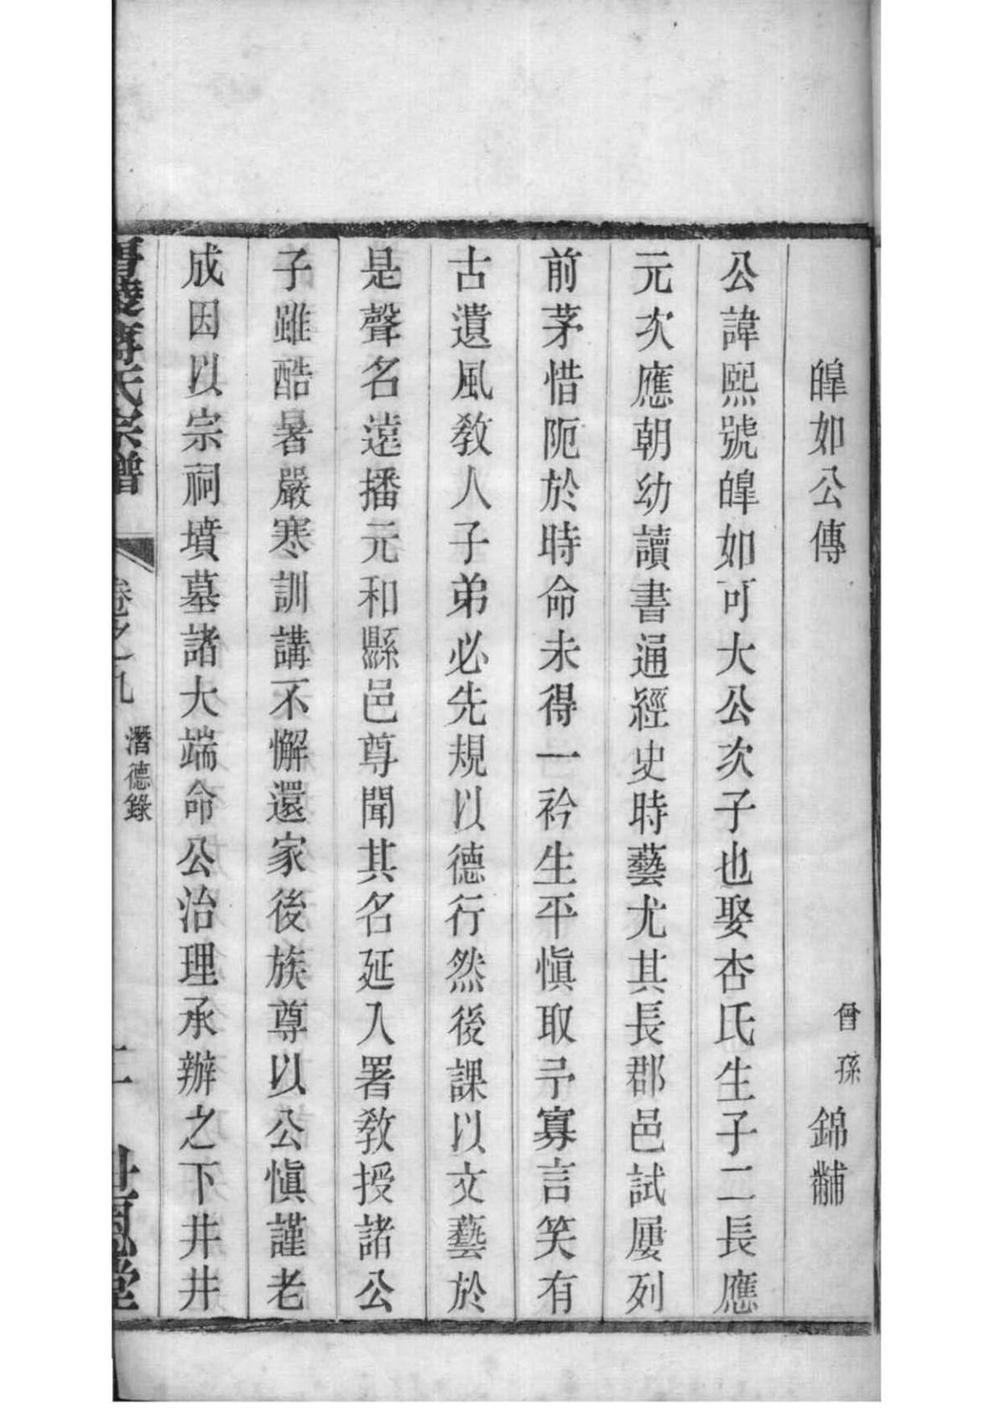 皥如公傳
曾孫 錦黼
公諱熙號皥如可大公次子也娶杏氏生子二長應
元次應朝幼讀書通經史時藝尤其長郡邑試屢列
前茅惜阨於時命未得一衿生平愼取予寡言笑有
古遺風教人子弟必先規以德行然後課以文藝於
是聲名遠播元和縣邑尊聞其名延入署教授諸公
子雖酷暑嚴寒訓講不懈還家後族尊以公愼謹老
成因以宗祠墳墓諸大端命公治理承辦之下井井
氏宗譜
卷之九
潛德錄
堂